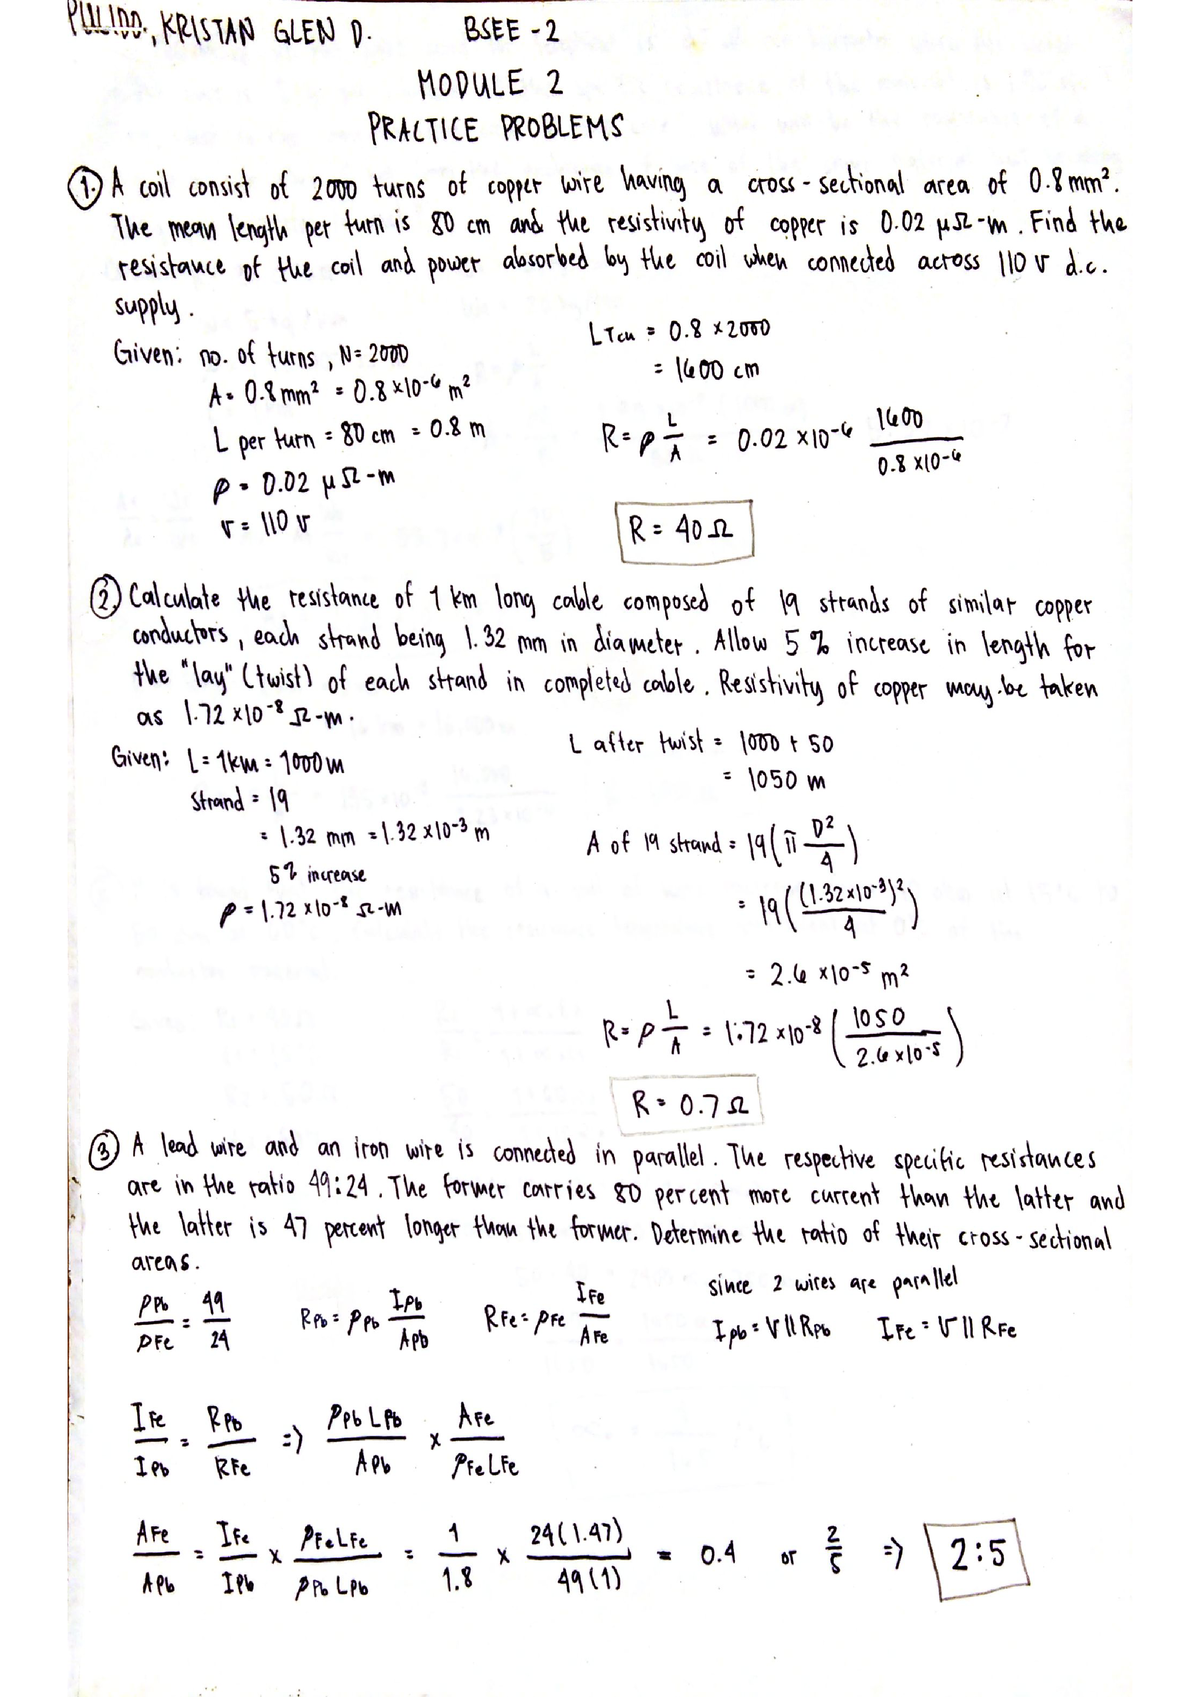 PULIDO, KRISTAN GLEN D. BSEE - 2
MODULE 2
PRACTICE PROBLEMS
1. A coil consist of 2000 turns of copper wire having a cross - sectional area of 0.8 mm².
The mean length per turn is 80 cm and the resistivity of copper is 0.02 μΩ-m. Find the
resistance of the coil and power absorbed by the coil when connected across 110 v d.c.
supply.
Given: no. of turns, N = 2000
A = 0.8 mm² = 0.8 × 10-6 m²
L per turn = 80 cm = 0.8 m
ρ = 0.02 μΩ-m
v = 110 v
LTcu = 0.8 × 2000
= 1600 cm
R = ρ L/A = 0.02 × 10-6 1600/0.8 × 10-6
R = 40 Ω
2. Calculate the resistance of 1 km long cable composed of 19 strands of similar copper
conductors, each strand being 1.32 mm in diameter. Allow 5% increase in length for
the "lay" (twist) of each strand in completed cable. Resistivity of copper may be taken
as 1.72 × 10-8 Ω-m.
Given: L = 1km = 1000 m
Strand = 19
= 1.32 mm = 1.32 × 10-3 m
5% increase
ρ = 1.72 × 10-8 Ω-m
L after twist = 1000 + 50
= 1050 m
A of 19 strand = 19(π D²/4)
= 19((1.32×10-3)²/4)
= 2.6 × 10-5 m²
R = ρ L/A = 1.72 × 10-8 (1050/2.6×10-5)
R = 0.7 Ω
3. A lead wire and an iron wire is connected in parallel. The respective specific resistances
are in the ratio 49:24. The former carries 80 percent more current than the latter and
the latter is 47 percent longer than the former. Determine the ratio of their cross - sectional
areas.
ρPb/ρFe = 49/24 RPb = ρPb IPb/APb RFe = ρFe IFe/AFe
since 2 wires are parallel
Ipb = V || RPb IFe = V || RFe
IFe/IPb = RPb/RFe => ρPb LPb/APb × AFe/ρFe LFe
AFe/APb = IFe/IPb × ρFe LFe/ρPb LPb = 1/1.8 × 24(1.47)/49(1) = 0.4 or 2/5 => 2:5